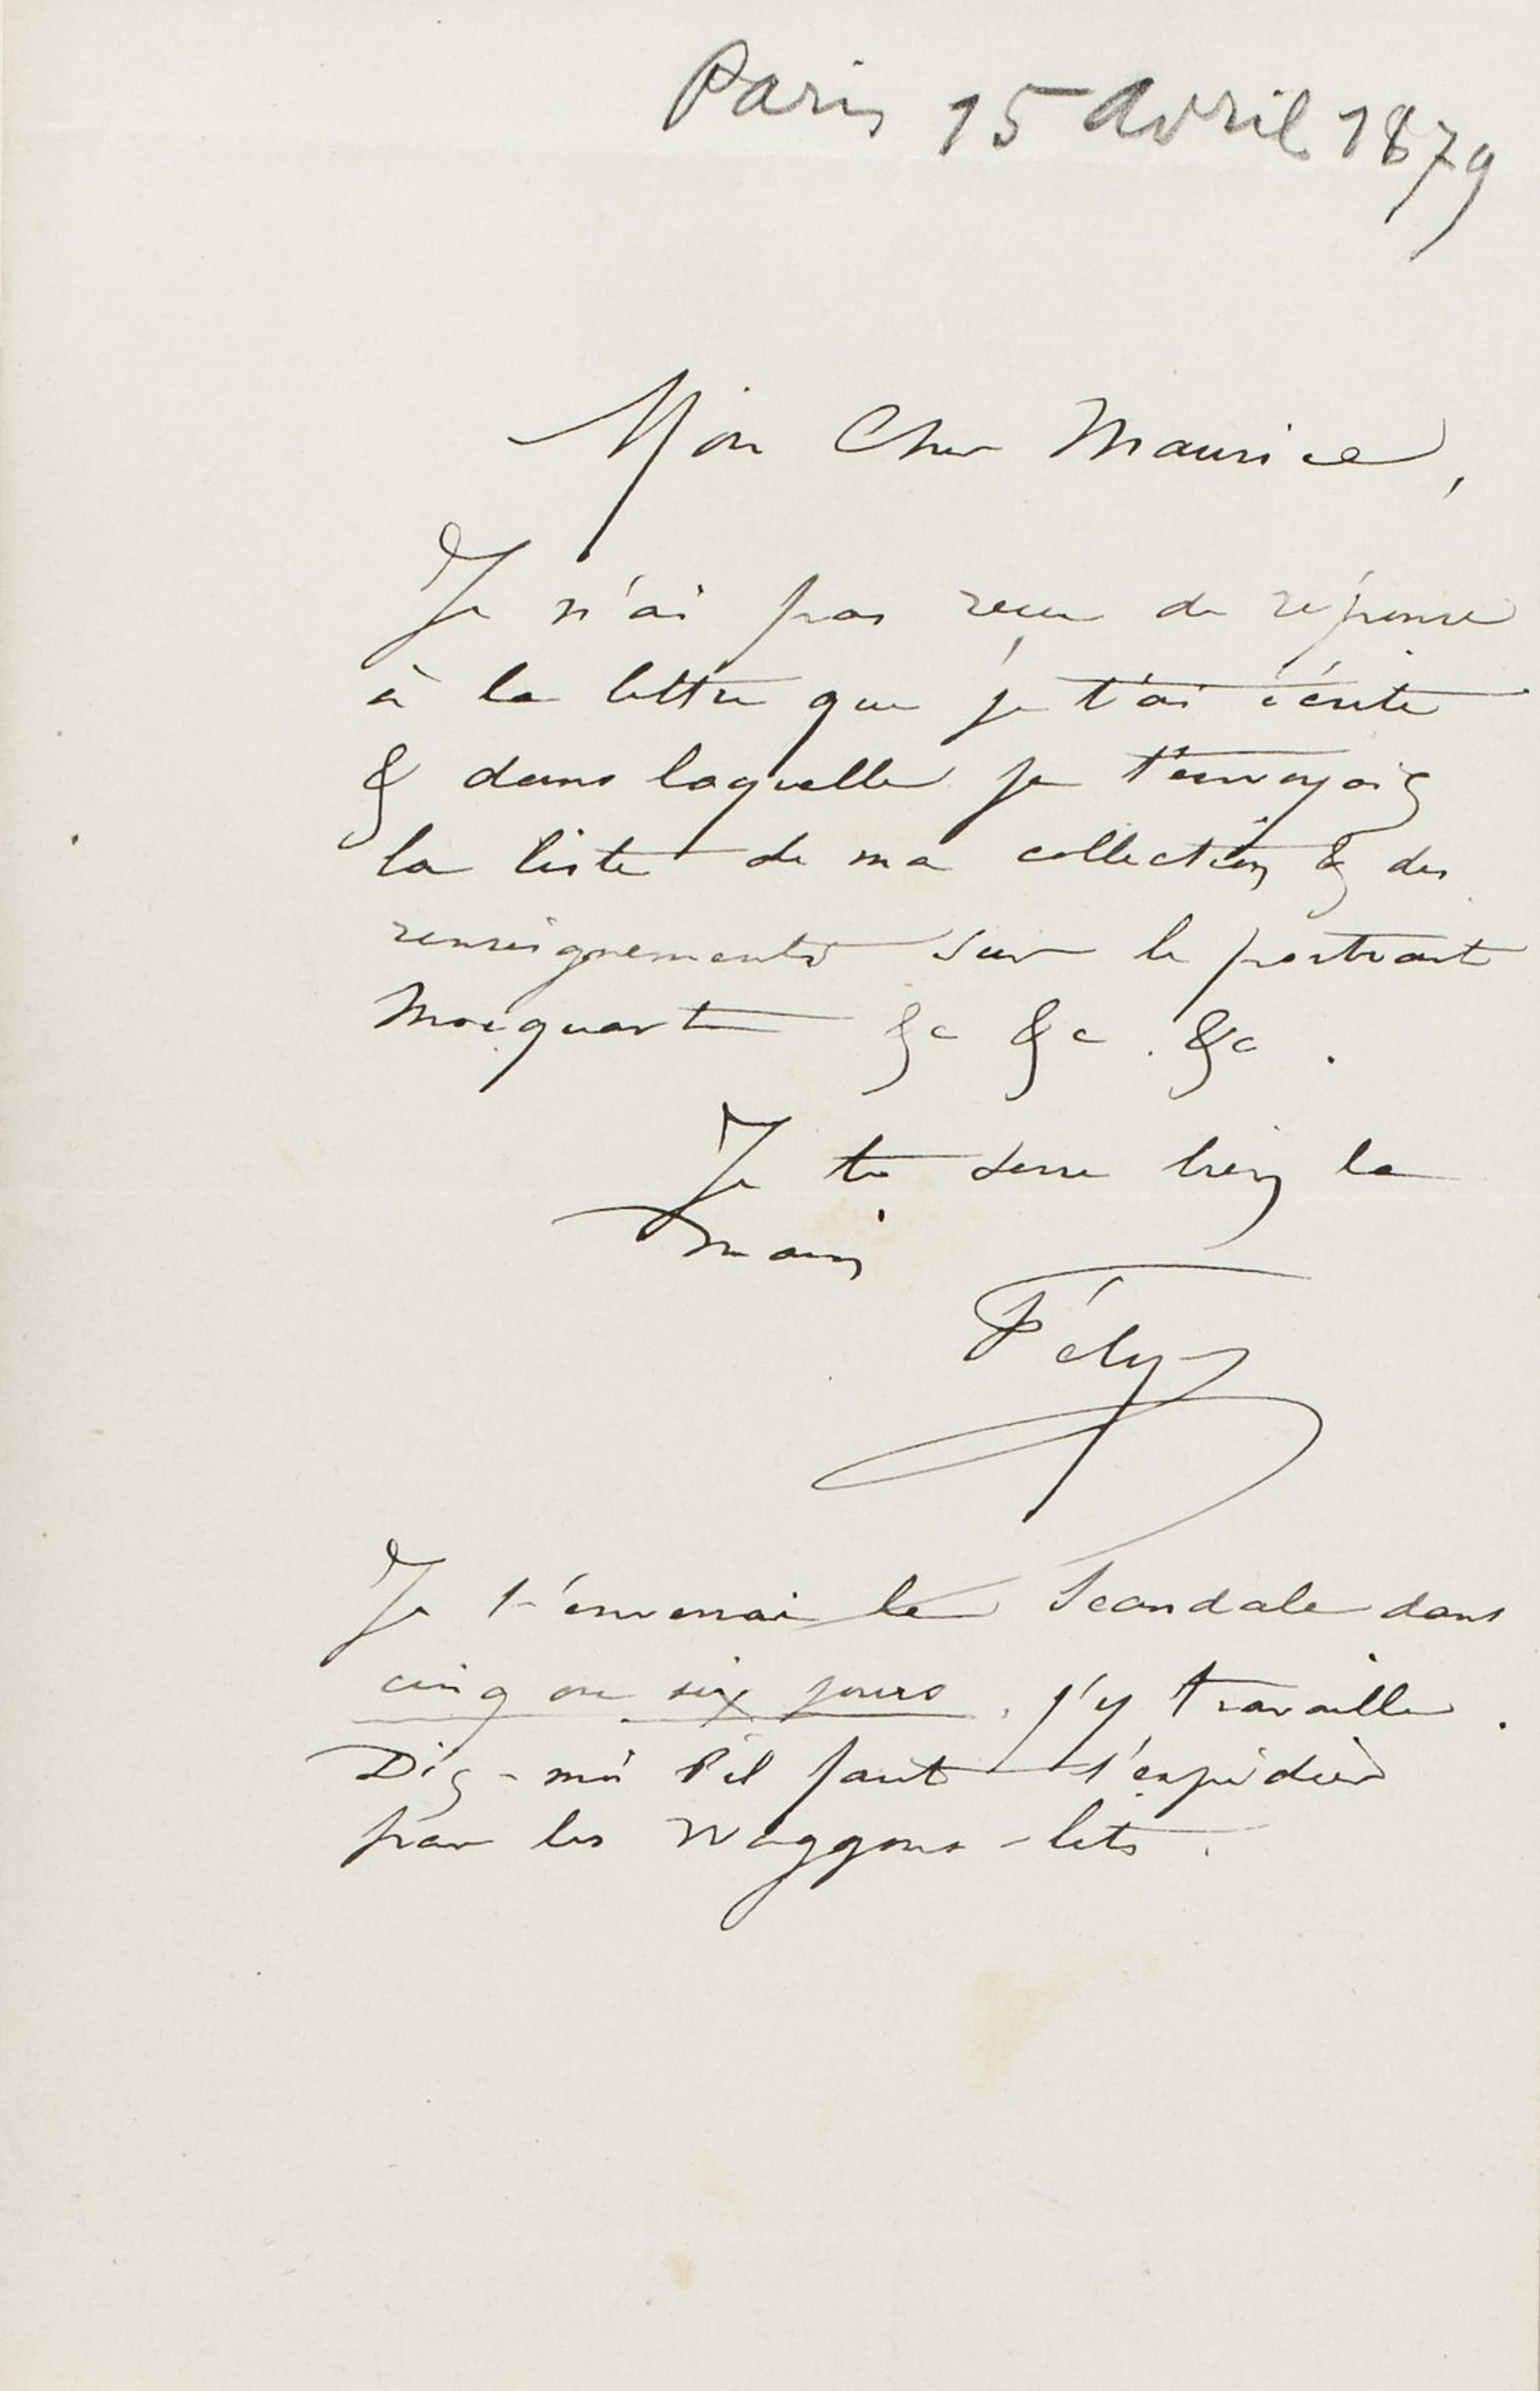 Paris 15 Avril 1879
Mon Cher Maurice,
Je n'ai pas reçu de réponse
à la lettre que je t'ai écrite
& dans laquelle je t'envoyais
la liste de ma collection & des
renseignements sur le portrait
Mocquart &c &c. &c.
Je te serre bien la
main
Fély
Je t'enverrai le Scandale dans
cinq ou six jours. j'y travaille.
Dis-moi s'il faut l'expédier
par les Waggons-lits.